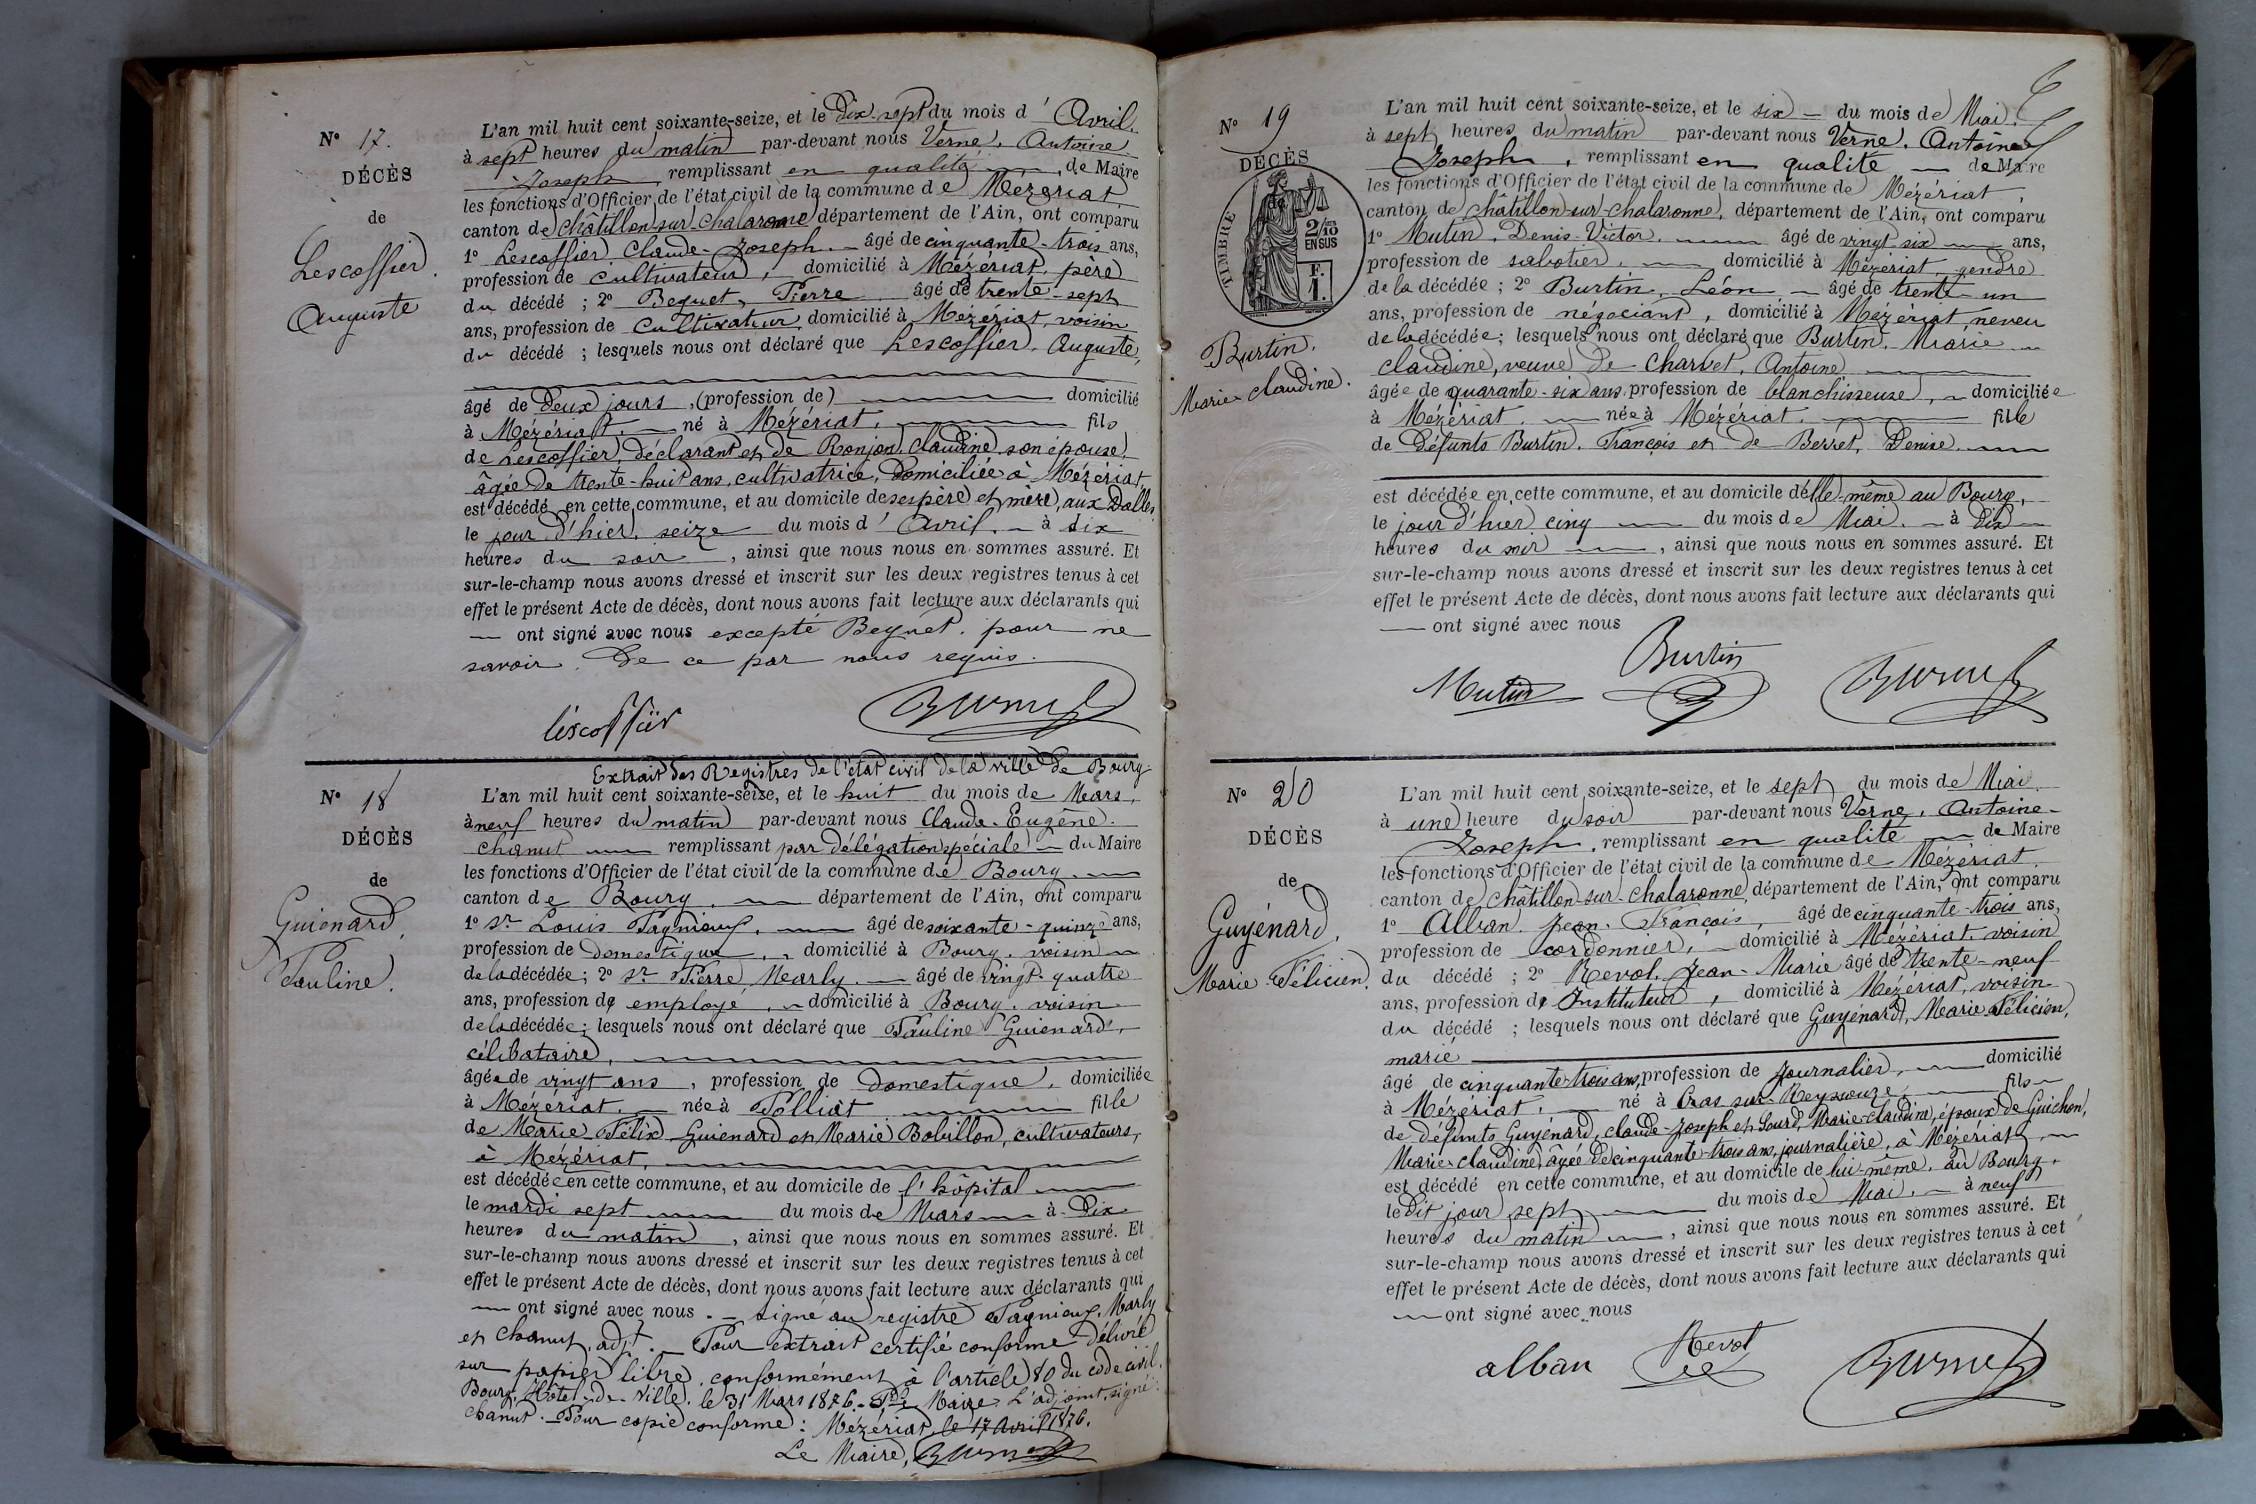 N° 17.
DÉCÈS
de
Lescoffier.
Auguste
L'an mil huit cent soixante-seize, et le Dix-sept du mois d' Avril.
à sept heures du matin par-devant nous Verne, Antoine
Joseph, remplissant en qualité de Maire
les fonctions d'Officier de l'état civil de la commune de Mézériat,
canton de Châtillon-sur-Chalaronne département de l'Ain, ont comparu
1° Lescoffier, Claude-Joseph. âgé de cinquante-trois ans,
profession de cultivateur, domicilié à Mézériat, père
du décédé ; 2° Beguet, Pierre âgé de trente-sept
ans, profession de cultivateur, domicilié à Mézériat, voisin
du décédé ; lesquels nous ont déclaré que Lescoffier, Auguste,
âgé de Deux jours, (profession de) domicilié
à Mézériat, né à Mézériat, fils
de Lescoffier, déclarant et de Ronjon, Claudine, son épouse,
âgée de trente-huit ans, cultivatrice, domiciliée à Mézériat,
est décédé en cette commune, et au domicile de ses père et mère, aux Dalles,
le jour d'hier, seize du mois d' Avril. à six
heures du soir, ainsi que nous nous en sommes assuré. Et
sur-le-champ nous avons dressé et inscrit sur les deux registres tenus à cet
effet le présent Acte de décès, dont nous avons fait lecture aux déclarants qui
ont signé avec nous excepté Beguet, pour ne
savoir. De ce par nous requis.
lescoffier
N° 18
DÉCÈS
de
Guienard,
Pauline.
Extrait des Registres de l'état civil de la ville de Bourg
L'an mil huit cent soixante-seize, et le huit du mois de Mars,
à neuf heures du matin par-devant nous Claude-Eugène.
Chanut remplissant par délégation spéciale du Maire
les fonctions d'Officier de l'état civil de la commune de Bourg.
canton de Bourg, département de l'Ain, ont comparu
1° Sr Louis Pagnieux, âgé de soixante-quinze ans,
profession de domestique, domicilié à Bourg, voisin
de la décédée ; 2° Sr Pierre Marly. âgé de vingt-quatre
ans, profession de employé, domicilié à Bourg, voisin
de la décédée ; lesquels nous ont déclaré que Pauline Guienard,
célibataire,
âgée de vingt ans, profession de domestique, domiciliée
à Mézériat. née à Polliat fille
de Marie Félix Guienard et Marie Bobillon, cultivateurs,
à Mézériat,
est décédée en cette commune, et au domicile de l'hôpital
le mardi sept du mois de Mars à Dix
heures du matin, ainsi que nous nous en sommes assuré. Et
sur-le-champ nous avons dressé et inscrit sur les deux registres tenus à cet
effet le présent Acte de décès, dont nous avons fait lecture aux déclarants qui
ont signé avec nous. signé au registre Pagnieux, Marly
et Chanut, adjt. Pour extrait certifié conforme délivré
sur papier libre, conformément à l'article 80 du code civil.
Bourg, Hôtel-de-Ville, le 31 Mars 1876. Pr le Maire L'adjoint, signé :
Chanut. Pour copie conforme : Mézériat, le 17 Avril 1876.
Le Maire,
N° 19
DÉCÈS
TIMBRE
2/10
EN SUS
F.
1.
Burtin.
Marie-Claudine.
L'an mil huit cent soixante-seize, et le six du mois de Mai.
à sept heures du matin par-devant nous Verne, Antoine
Joseph, remplissant en qualité de Maire
les fonctions d'Officier de l'état civil de la commune de Mézériat,
canton de Châtillon-sur-Chalaronne, département de l'Ain, ont comparu
1° Mutin, Denis-Victor. âgé de vingt-six ans,
profession de sabotier, domicilié à Mézériat, gendre
de la décédée ; 2° Burtin, Léon âgé de trente-un
ans, profession de négociant, domicilié à Mézériat, neveu
de la décédée ; lesquels nous ont déclaré que Burtin, Marie
Claudine, veuve de Charvet, Antoine
âgée de quarante-six ans, profession de blanchisseuse, domiciliée
à Mézériat née à Mézériat, fille
de Défunts Burtin, François et de Berret, Denise,
est décédée en cette commune, et au domicile d'elle-même au Bourg,
le jour d'hier cinq du mois de Mai. à Dix
heures du soir, ainsi que nous nous en sommes assuré. Et
sur-le-champ nous avons dressé et inscrit sur les deux registres tenus à cet
effet le présent Acte de décès, dont nous avons fait lecture aux déclarants qui
ont signé avec nous
Burtin
Mutin
N° 20
DÉCÈS
de
Guyénard,
Marie-Félicien.
L'an mil huit cent soixante-seize, et le sept du mois de Mai.
à une heure du soir par-devant nous Verne, Antoine-
Joseph, remplissant en qualité de Maire
les fonctions d'Officier de l'état civil de la commune de Mézériat.
canton de Châtillon-sur-Chalaronne, département de l'Ain, ont comparu
1° Alban, Jean-François, âgé de cinquante-trois ans,
profession de cordonnier, domicilié à Mézériat, voisin
du décédé ; 2° Revol, Jean-Marie âgé de trente-neuf
ans, profession d' Instituteur, domicilié à Mézériat, voisin
du décédé ; lesquels nous ont déclaré que Guyénard, Marie Félicien,
marié
âgé de cinquante-trois ans, profession de journalier, domicilié
à Mézériat, né à Cras-sur-Reyssouze, fils
de défunts Guyénard, Claude-Joseph et Sourd, Marie-Claudine, époux de Guichon,
Marie-Claudine, âgée de cinquante-trois ans, journalière, à Mézériat,
est décédé en cette commune, et au domicile de lui-même, au Bourg,
le Dit jour sept du mois de Mai. à neuf
heures du matin, ainsi que nous nous en sommes assuré. Et
sur-le-champ nous avons dressé et inscrit sur les deux registres tenus à cet
effet le présent Acte de décès, dont nous avons fait lecture aux déclarants qui
ont signé avec nous
Revol
alban